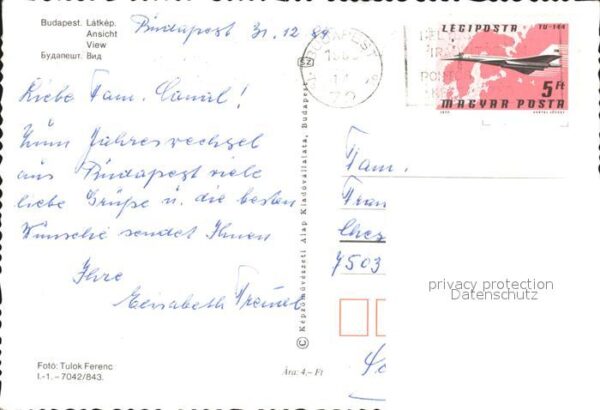 Budapest. Látkép.
Ansicht
View
Будапешт. Вид
Budapest 31.12.84
Liebe Fam.
Zum Jahreswechsel
aus Budapest viele
liebe Grüße u. die besten
Wünsche sendet Ihnen
Ihre
Elisabeth
Fotó: Tulok Ferenc
I.-1.- 7042/843.
Ára: 4,- Ft
© Képzőművészeti Alap Kiadóvállalata, Budapest
SZ
BUDAPEST
72
LÉGIPOSTA TU-144
5 Ft
MAGYAR POSTA
Fam.
Fran
Chez
7503
privacy protection
Datenschutz